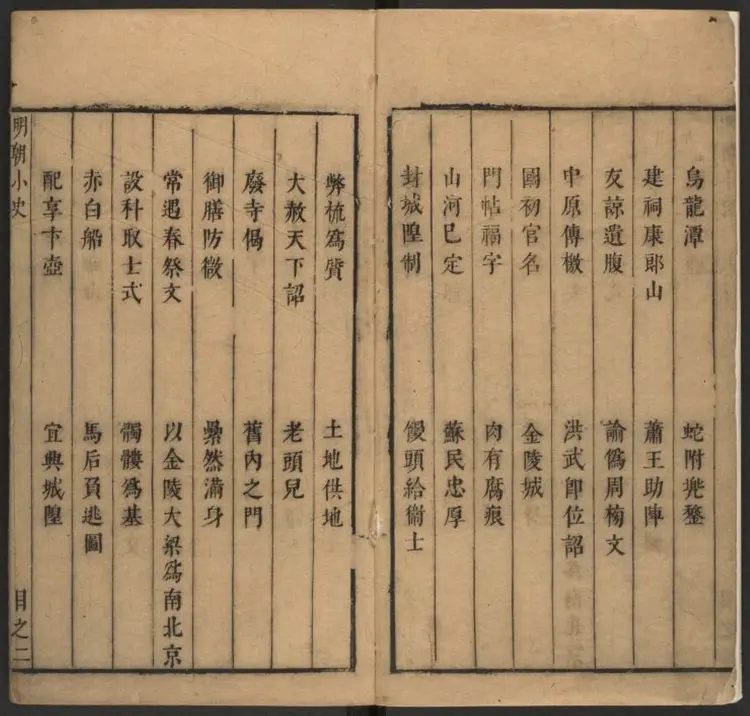 烏龍潭　蛇附兠鍪
建祠康郎山　蕭王助陣
友諒遺腹　諭僞周榜文
中原傳檄　洪武卽位詔
國初官名　金陵城
門帖福字　肉有腐痕
山河已定　蘇民忠厚
封城隍制　饅頭給衞士
弊梳爲質　土地供地
大赦天下詔　老頭兒
廢寺偈　舊內之門
御膳防微　纍然滿身
常遇春祭文　以金陵大梁爲南北京
設科取士式　髑髏爲基
赤白船　馬后負逃圖
配享卞壼　宜興城隍
明朝小史　目之二